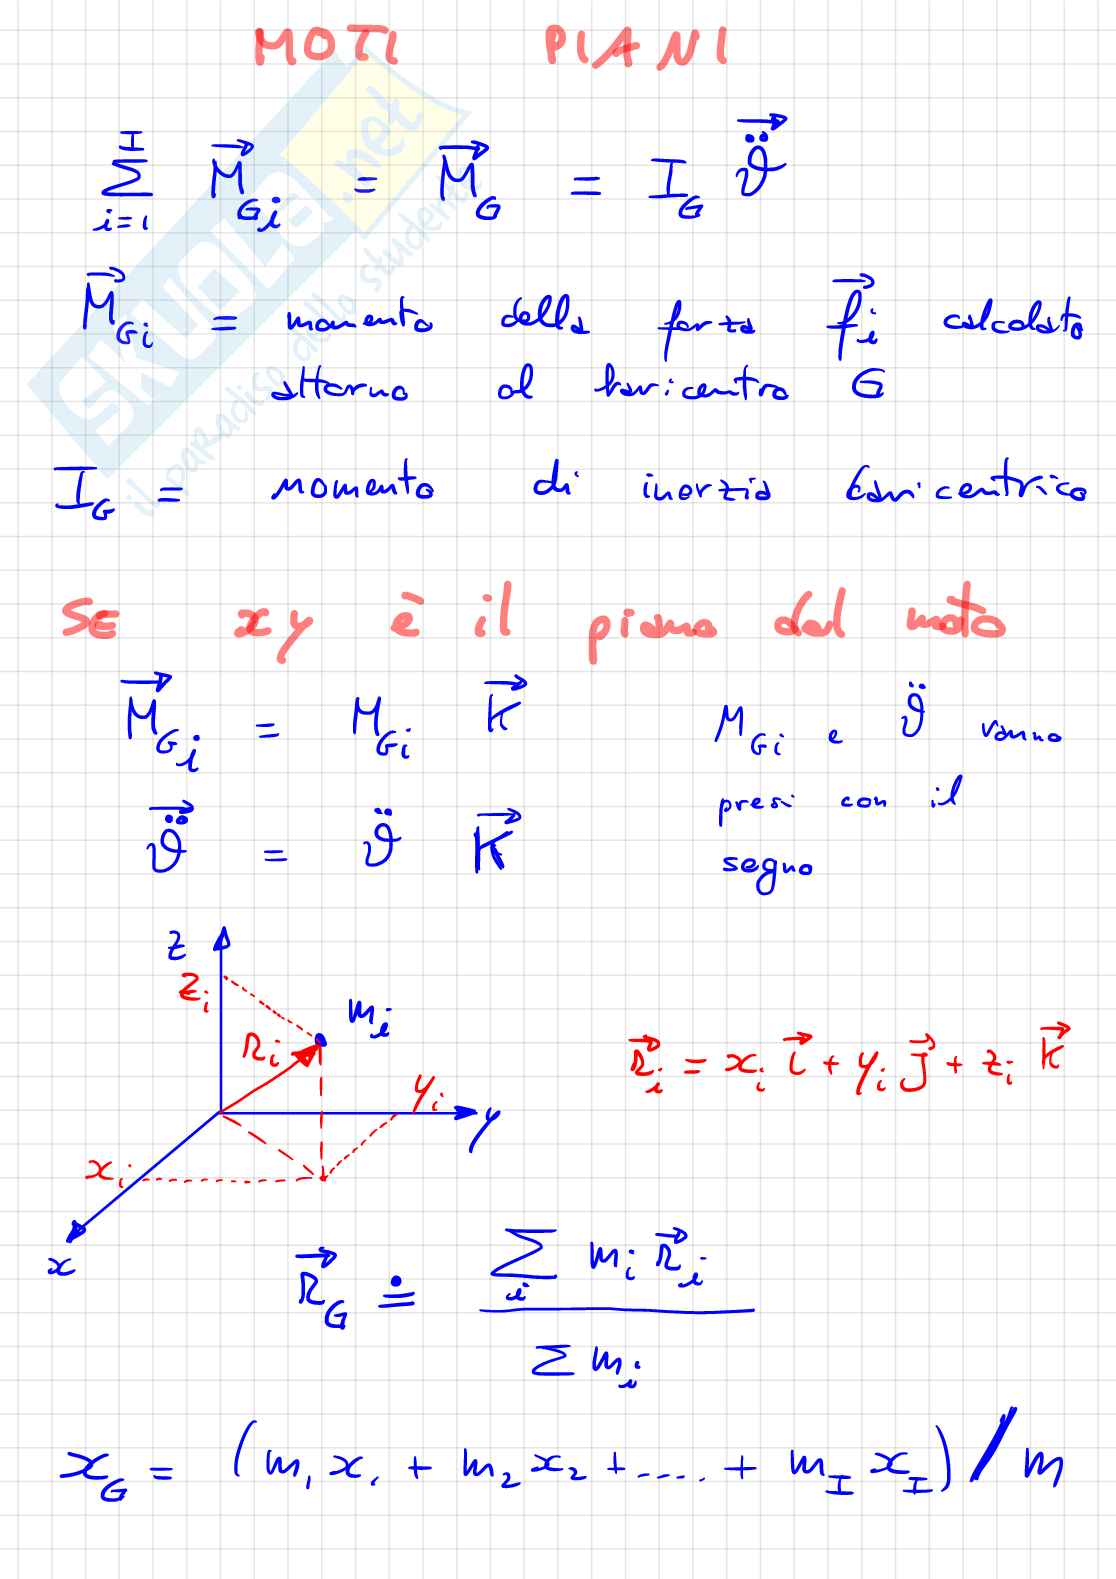 MOTI PIANI
∑_{i=1}^{I} M⃗_{Gi} = M⃗_G = I_G ϑ̈⃗
M⃗_{Gi} = momento della forza f⃗_i calcolato
attorno al baricentro G
I_G = momento di inerzia baricentrico
SE xy è il piano del moto
M⃗_{Gi} = M_{Gi} K⃗
M_{Gi} e ϑ̈ vanno
presi con il
segno
ϑ̈⃗ = ϑ̈ K⃗
z
z_i
m_i
r_i
y_i
y
x_i
x
r⃗_i = x_i i⃗ + y_i j⃗ + z_i k⃗
r⃗_G ≐ ∑_i m_i r⃗_i / ∑ m_i
x_G = (m_1 x_1 + m_2 x_2 + .... + m_I x_I) / m
SKUOLA.net
il paradiso dello studente